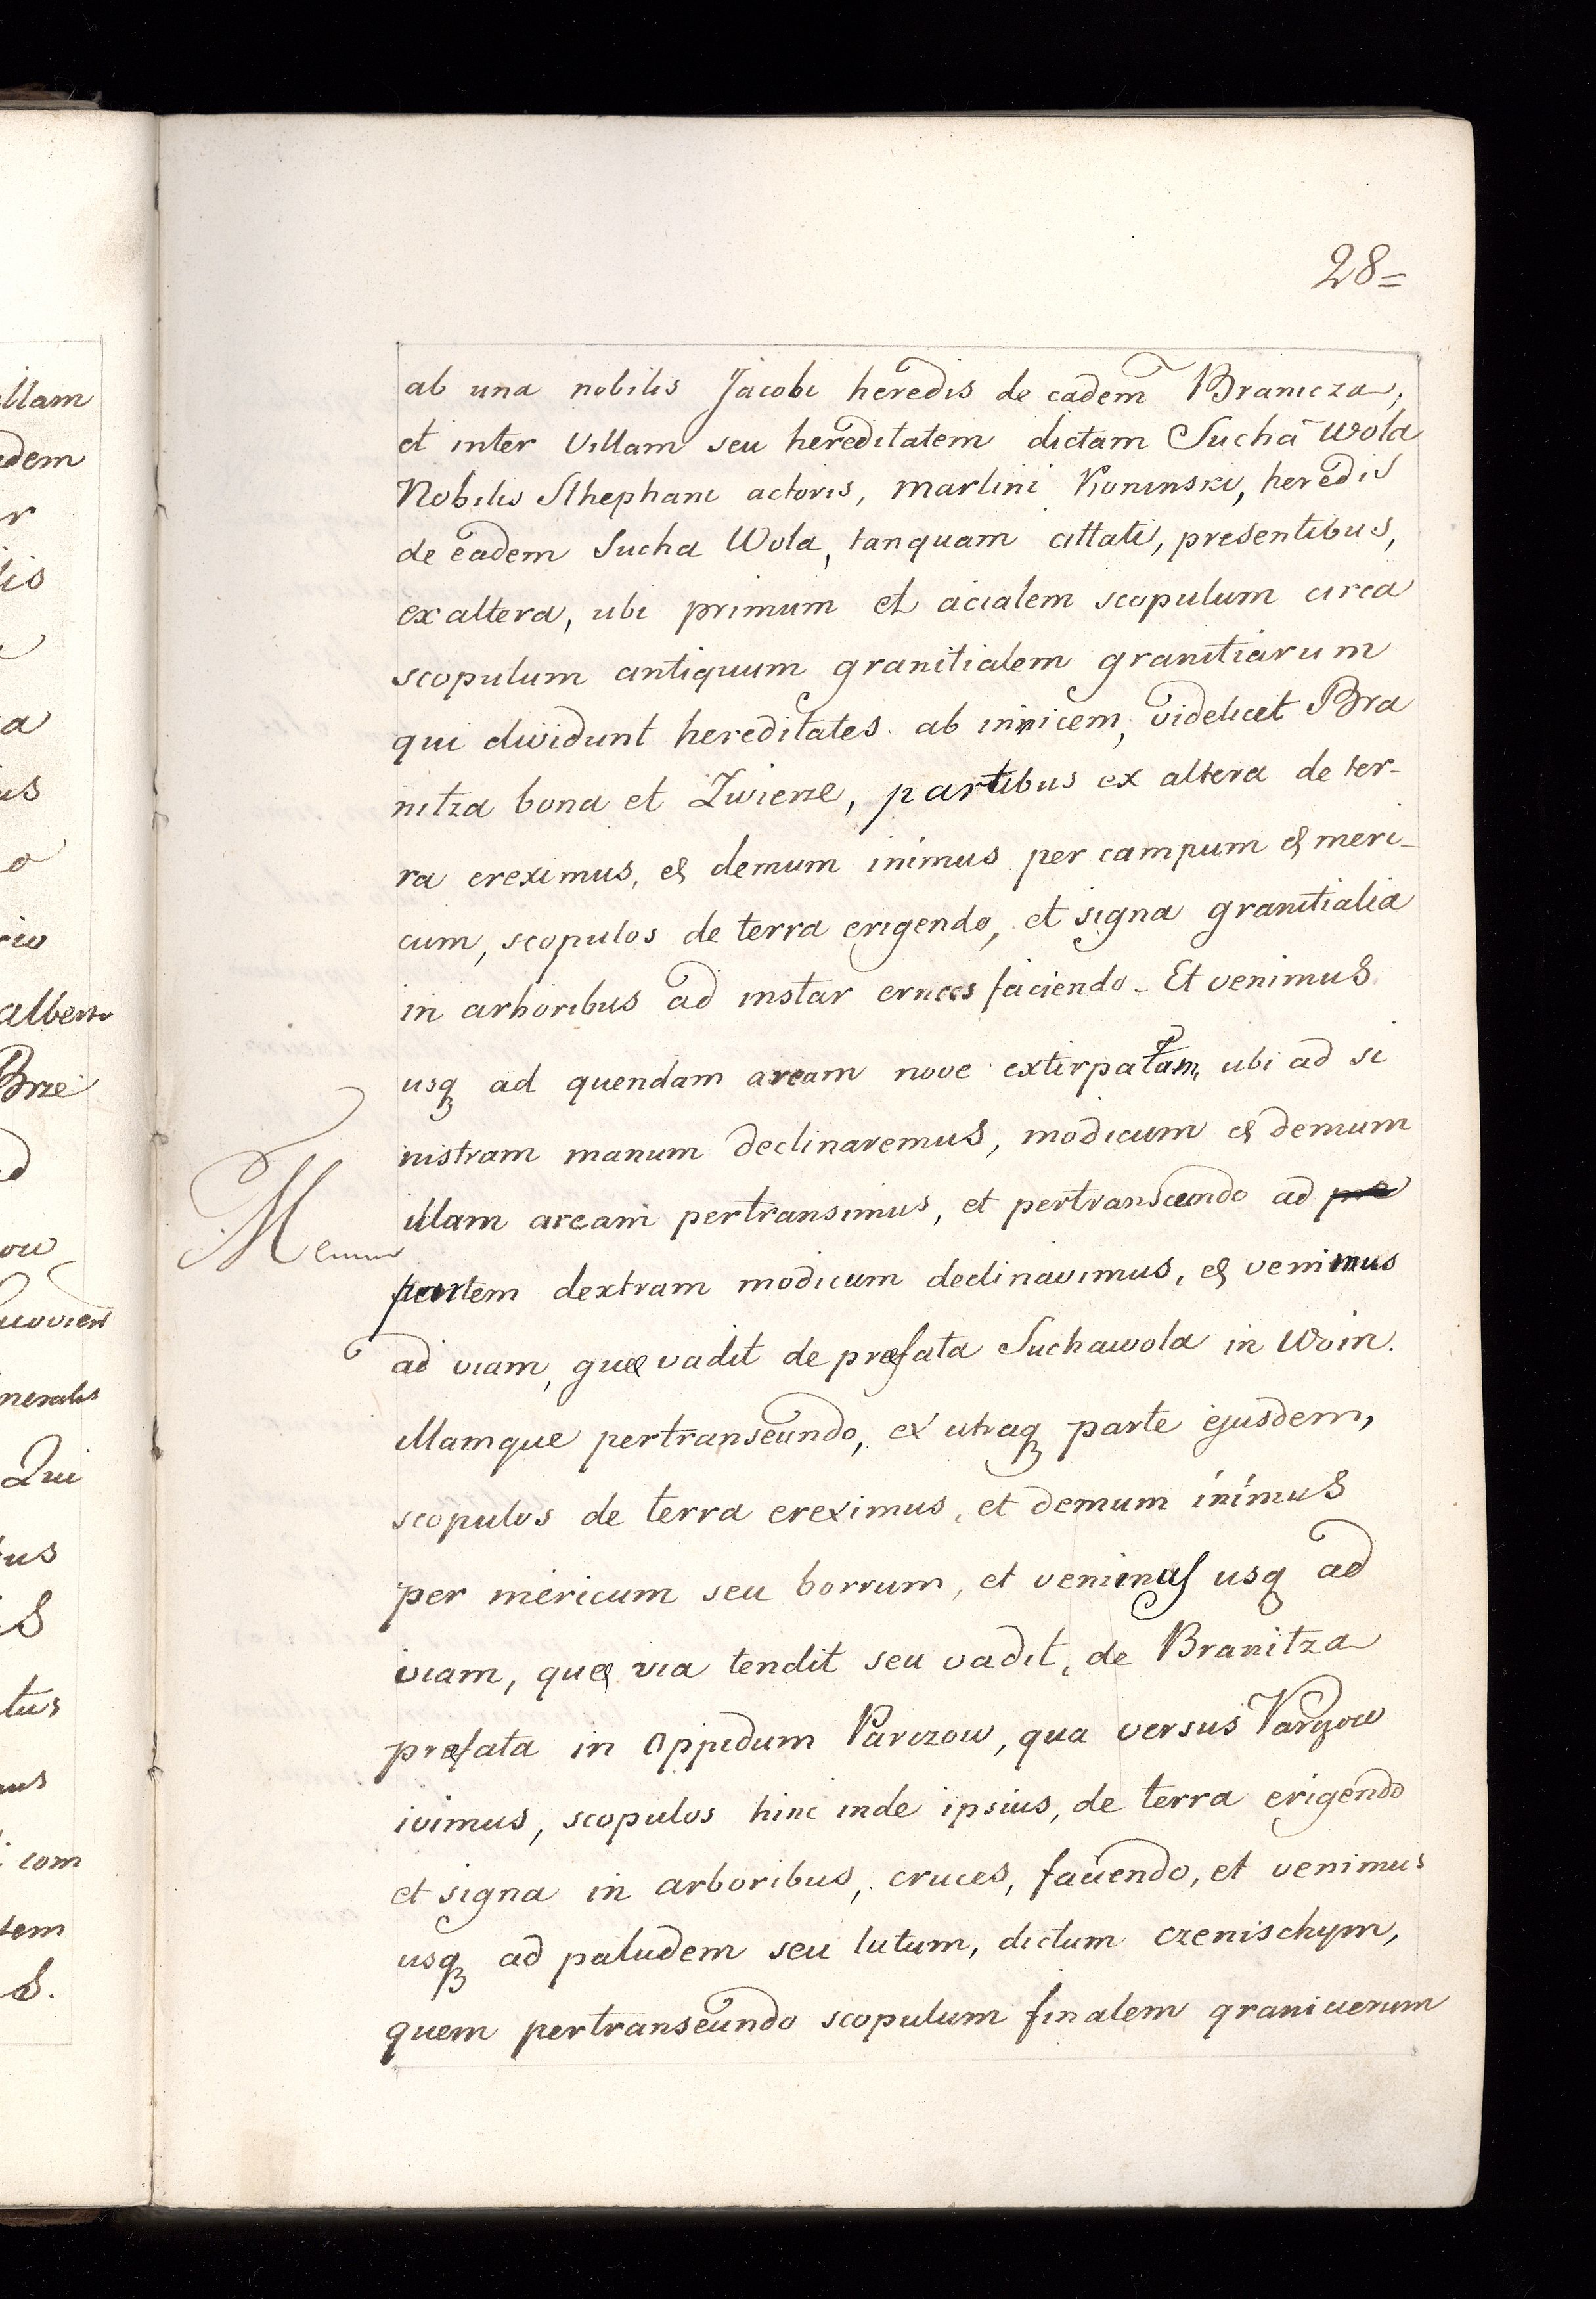 28=
ab una nobilis Jacobi heredis de eadem Branicza,
et inter Villam seu hereditatem dictam Sucha Wola
Nobilis Sthephani actoris, Martini Koninski, heredis
de eadem Sucha Wola, tanquam cittati, presentibus,
ex altera, ubi primum et acialem scopulum circa
scopulum antiquum granitialem granitiarum
qui dividunt hereditates ab invicem, videlicet Bra
nitza bona et Zwierze, partibus ex altera de ter-
ra ereximus, & demum inimus per campum & meri-
cum, scopulos de terra erigendo, et signa granitialia
in arboribus ad instar cruces faciendo - Et venimus
usq ad quendam aream nove extirpatam, ubi ad si
nistram manum declinaremus, modicum & demum
illam aream pertransimus, et pertranseundo ad
partem dextram modicum declinavimus, & venimus
ad viam, quæ vadit de præfata Suchawola in Woin.
illamque pertranseundo, ex utraq parte ejusdem,
scopulos de terra ereximus, et demum inimus
per mericum seu borrum, et venimus usq ad
viam, quæ via tendit seu vadit, de Branitza
præfata in oppidum Parczow, qua versus Parczow
ivimus, scopulos hinc inde ipsius, de terra erigendo
et signa in arboribus, cruces, faciendo, et venimus
usq ad paludem seu lutum, dictum czenischym,
quem pertranseundo scopulum finalem granicierum